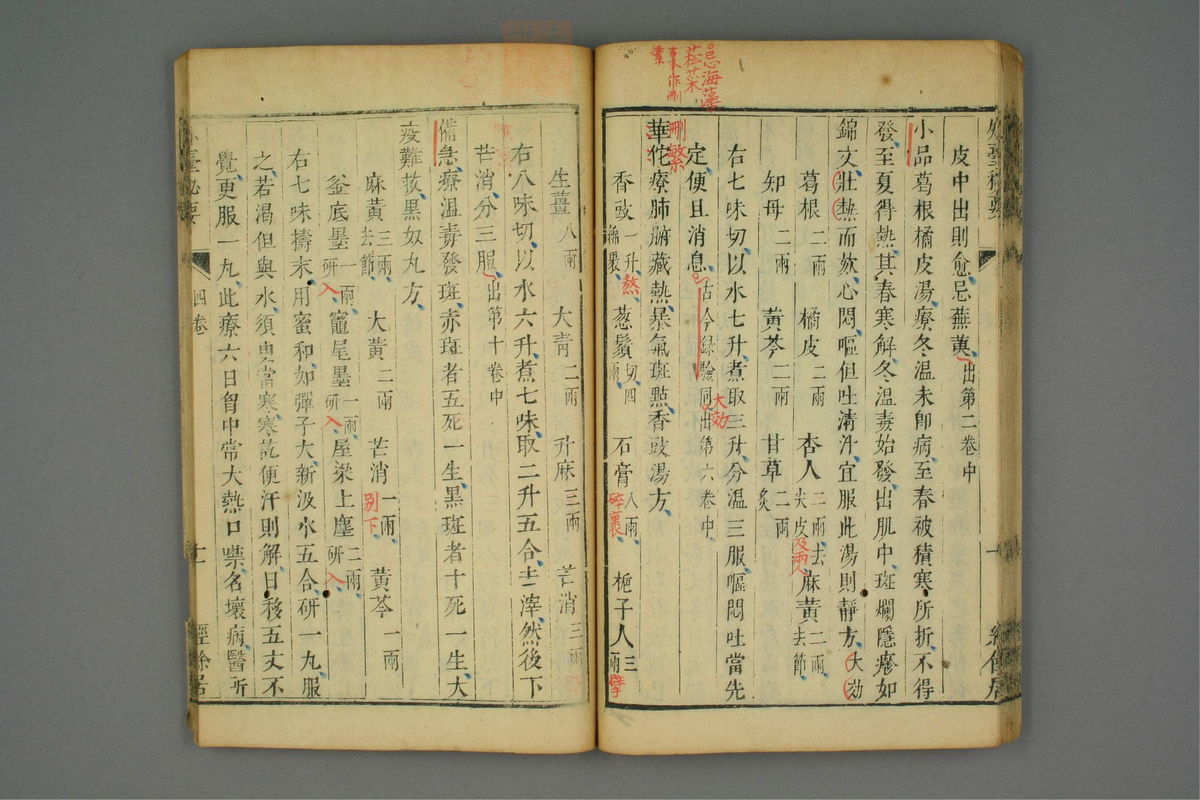 忌海藻
菘菜
皮中出則愈忌蕪荑出第二卷中
小品葛根橘皮湯療冬温未即病至春被積寒所折不得
發至夏得熱其春寒解冬温毒始發出肌中斑爛隱疹如
錦文壯熱而欬心悶嘔但吐清汁宜服此湯則靜方大効
葛根二兩 橘皮二兩 杏人二兩去尖皮及兩人 麻黄二兩去節
知母二兩 黄芩二兩 甘草二兩炙
右七味切以水七升煮取三升分温三服嘔悶吐當先
定便且消息古今録驗同出第六卷中
大効
刪繁
華佗療肺腑藏熱暴氣斑㸃香豉湯方
香豉一升綿裹 熬 葱鬚切四兩 石膏八兩碎裹 梔子人三兩擘
生薑八兩 大青二兩 升麻三兩 芒消三兩
右八味切以水六升煮七味取二升五合去滓然後下
芒消分三服出第十卷中
備急療温毒發斑赤斑者五死一生黒斑者十死一生大
疫難救黒奴丸方
麻黄三兩去節 大黄二兩 芒消一兩 別下 黄芩一兩
釜底墨一兩研入 竈尾墨一兩研入 屋梁上塵二兩研入
右七味擣末用蜜和如彈子大新汲水五合研一丸服
之若渇但與水須臾當寒寒訖便汗則解日移五丈不
覺更服一丸此療六日胷中常大熱口噤名壞病醫所
四卷
十一
經餘居